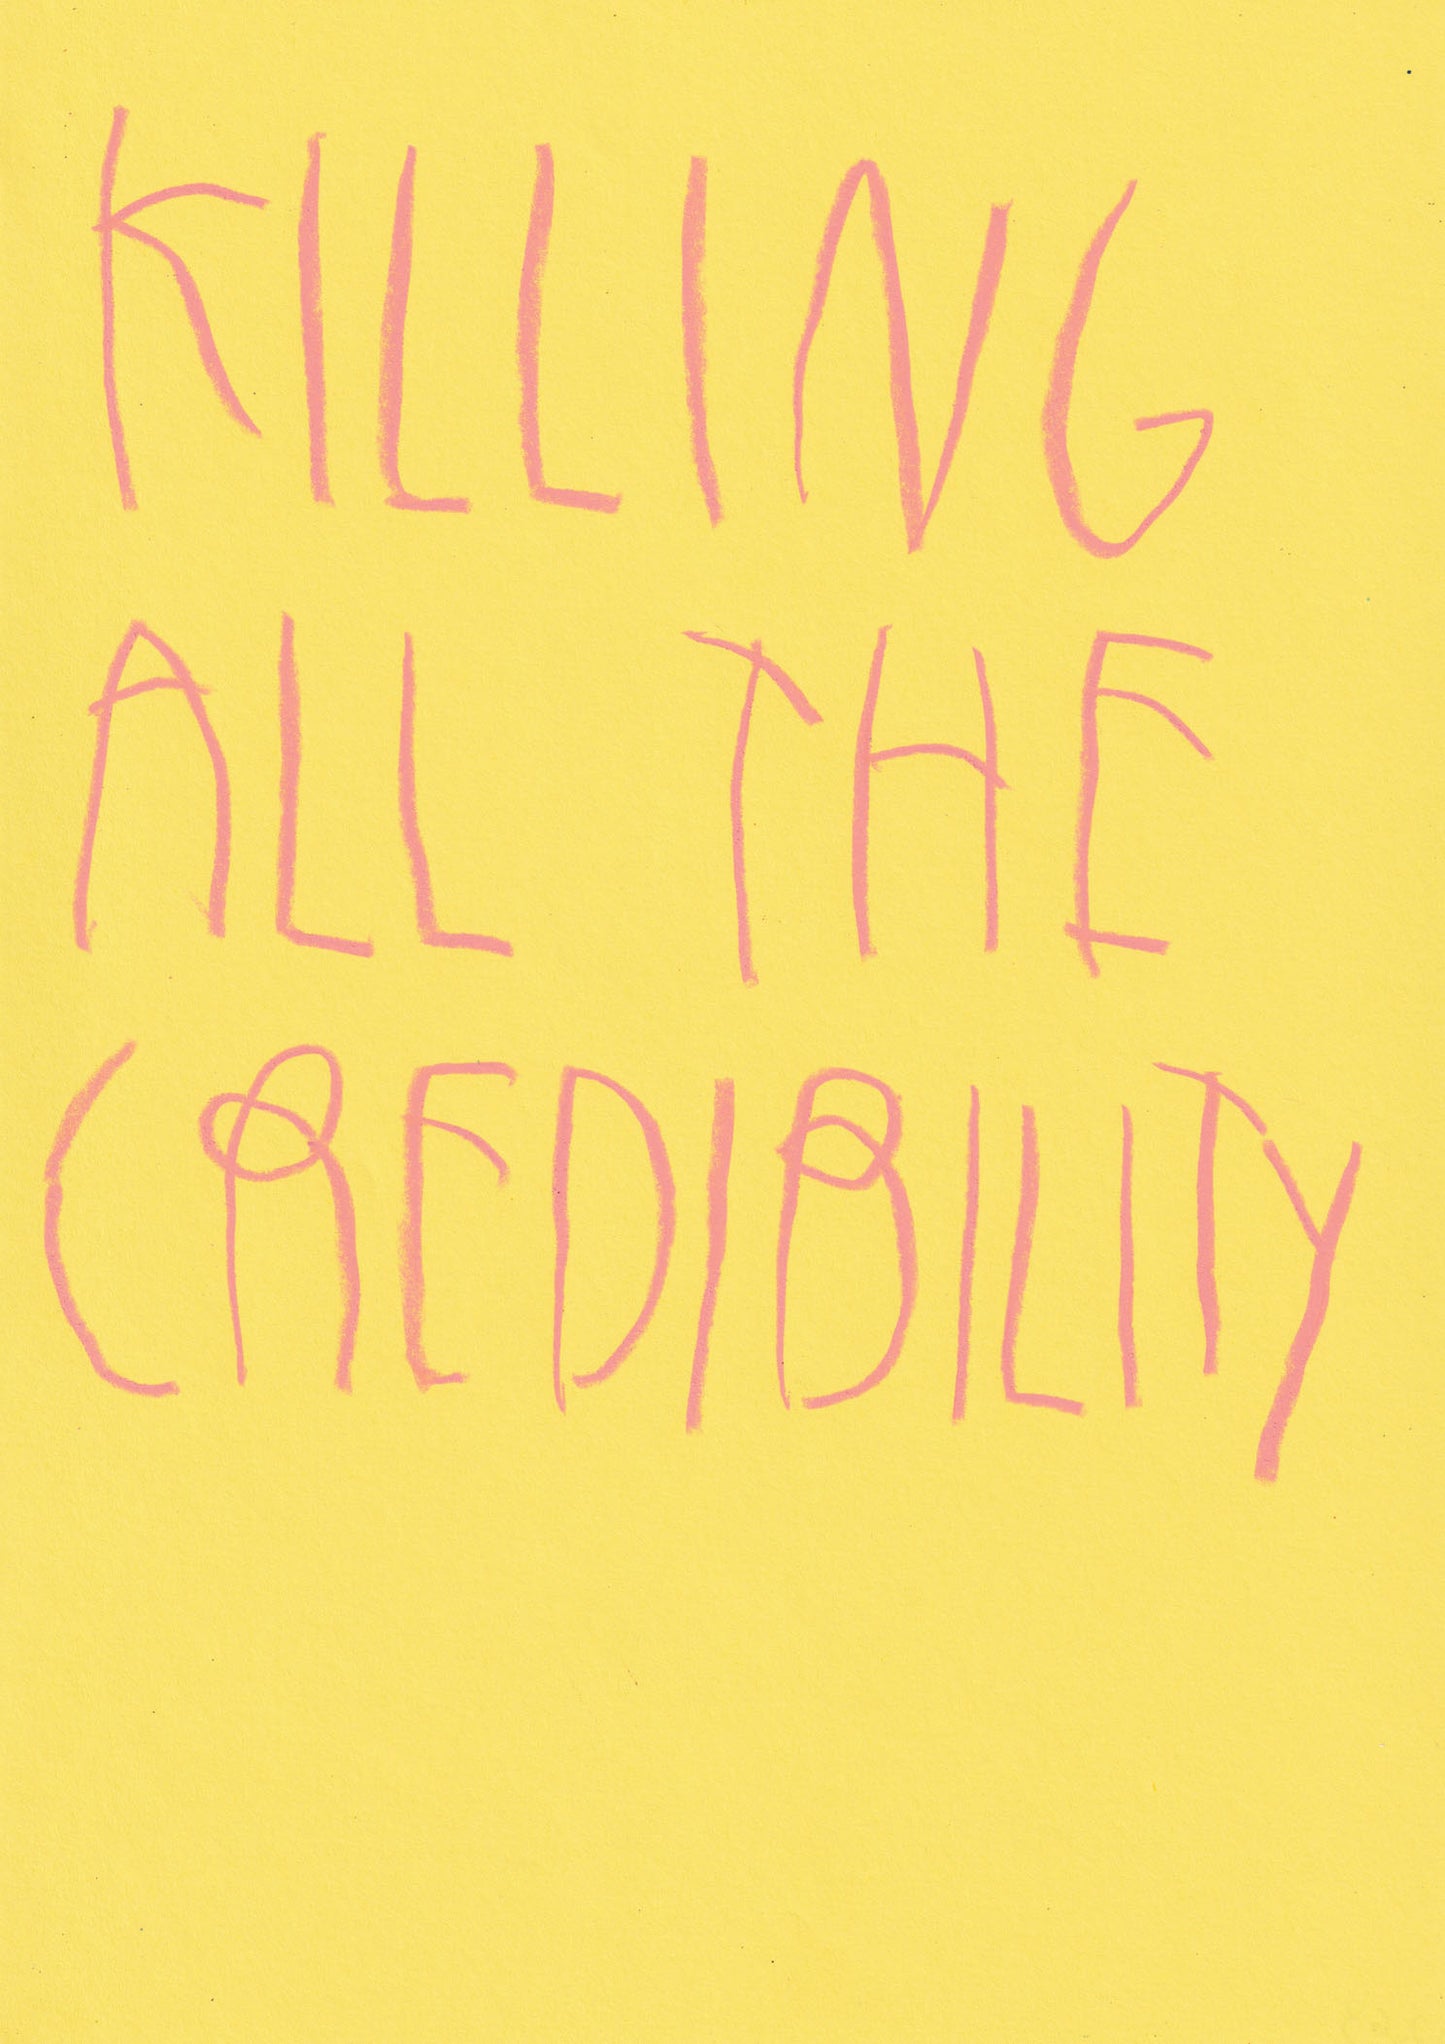 KILLING
ALL THE
CREDIBILITY